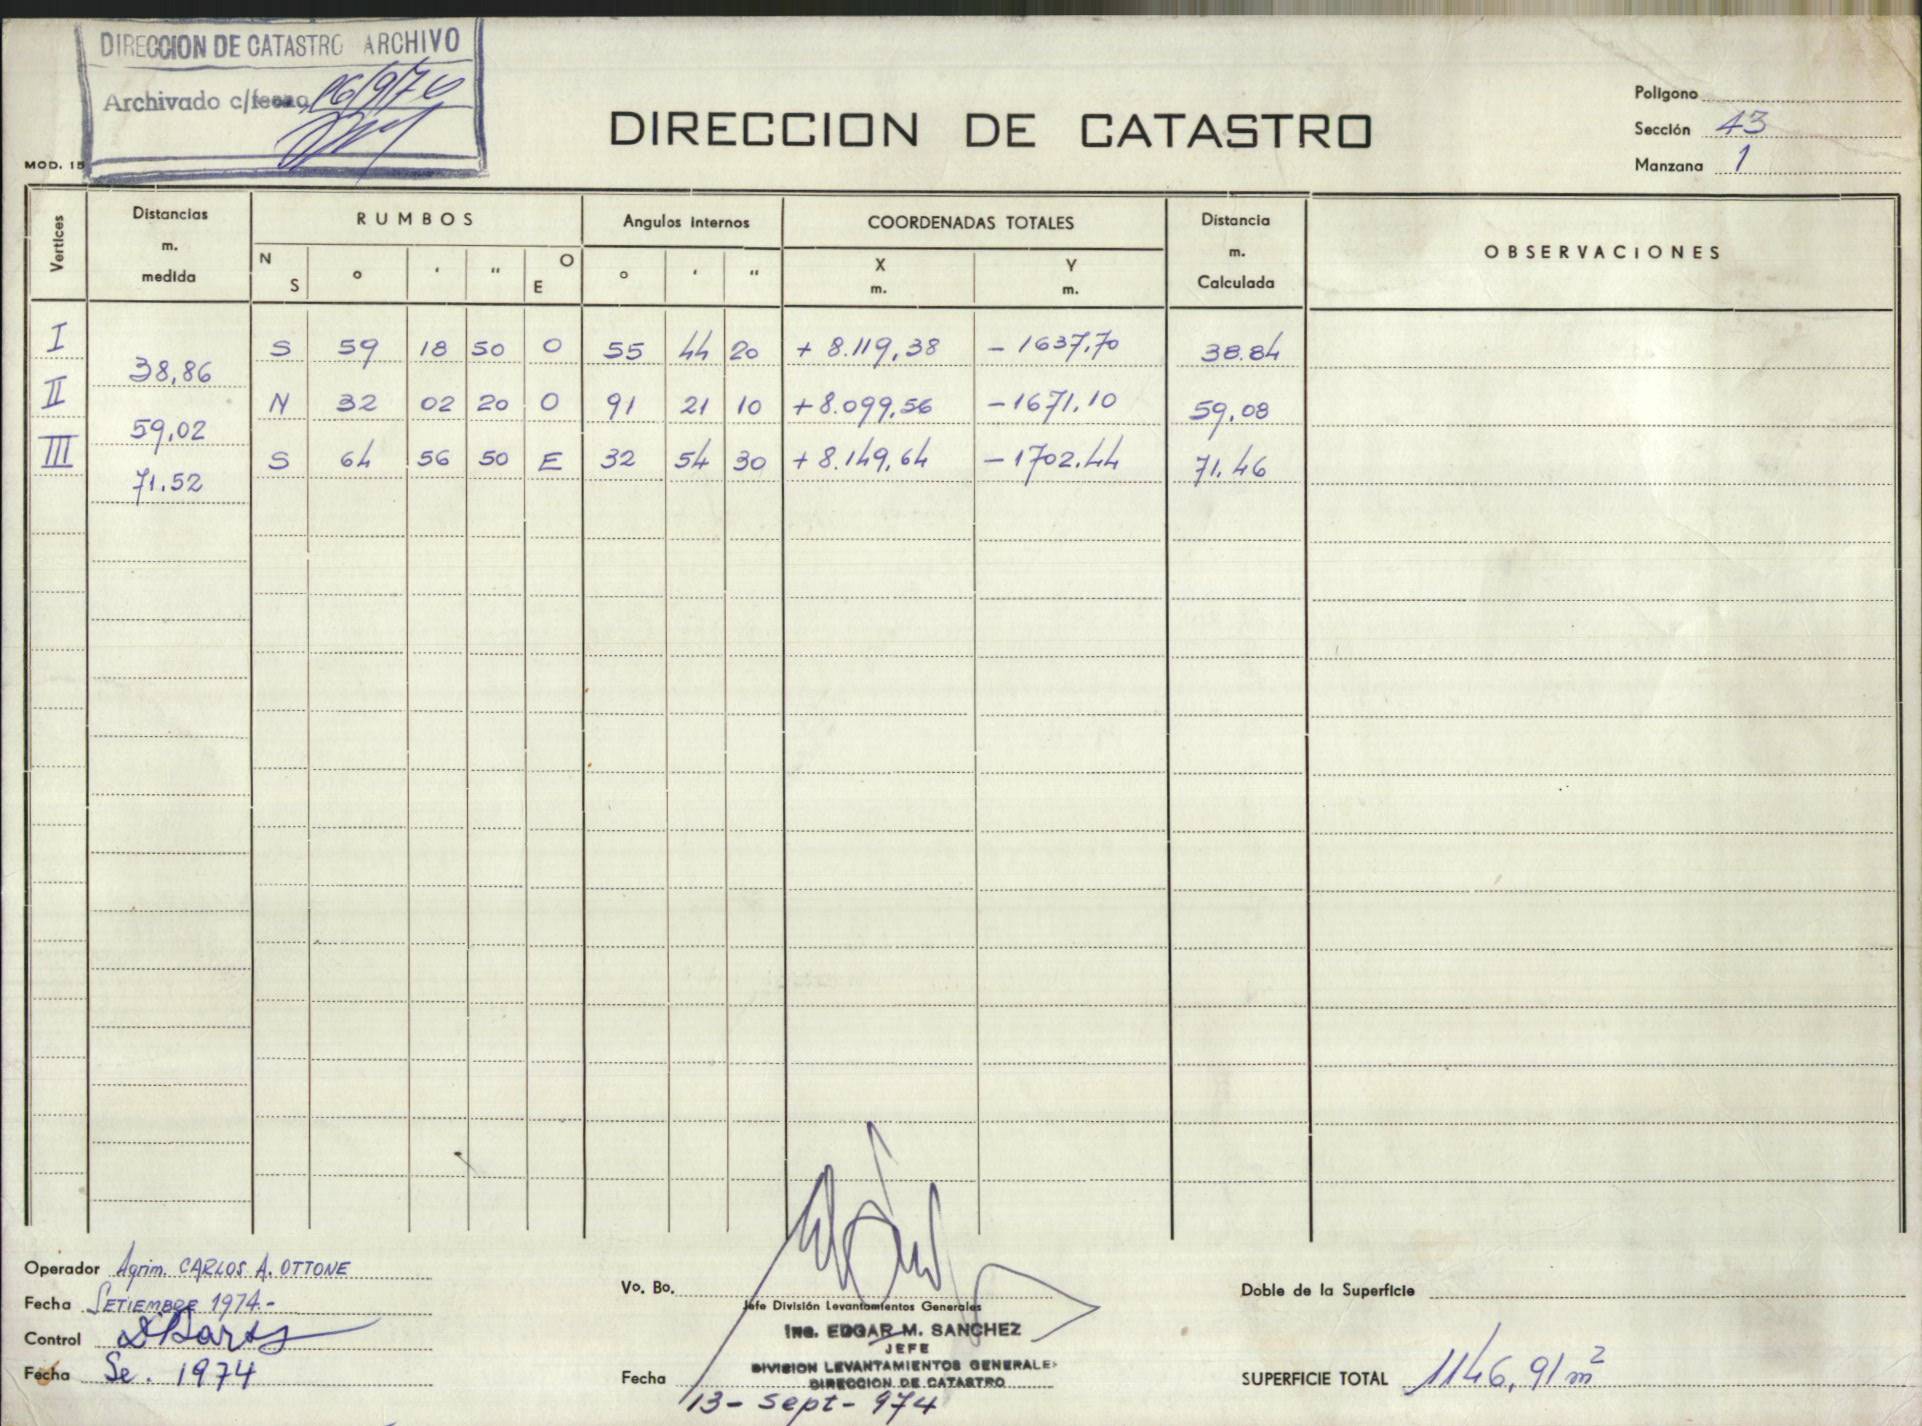 DIRECCION DE CATASTRO ARCHIVO
Archivado c/fecha 16/9/74
MOD. 15
DIRECCION DE CATASTRO
Polígono
Sección 43
Manzana 1
Vertices
Distancias m. medida
RUMBOS
N S ° ' " O E
Angulos internos
° ' "
COORDENADAS TOTALES
X m. Y m.
Distancia m. Calculada
OBSERVACIONES
I S 59 18 50 O 55 44 20 + 8.119,38 - 1637,70 38.84
38,86
II N 32 02 20 O 91 21 10 + 8.099,56 - 1671,10 59,08
59,02
III S 64 56 50 E 32 54 30 + 8.149,64 - 1702.44 71.46
71.52
Operador Agrim. CARLOS A. OTTONE
Fecha SETIEMBRE 1974.-
Control
Fecha Se. 1974
Vo. Bo.
Jefe División Levantamientos Generales
Ing. EDGAR M. SANCHEZ
JEFE
DIVISION LEVANTAMIENTOS GENERALES
DIRECCION DE CATASTRO
Fecha 13 - Sept - 974
Doble de la Superficie
SUPERFICIE TOTAL 1146,91 m²